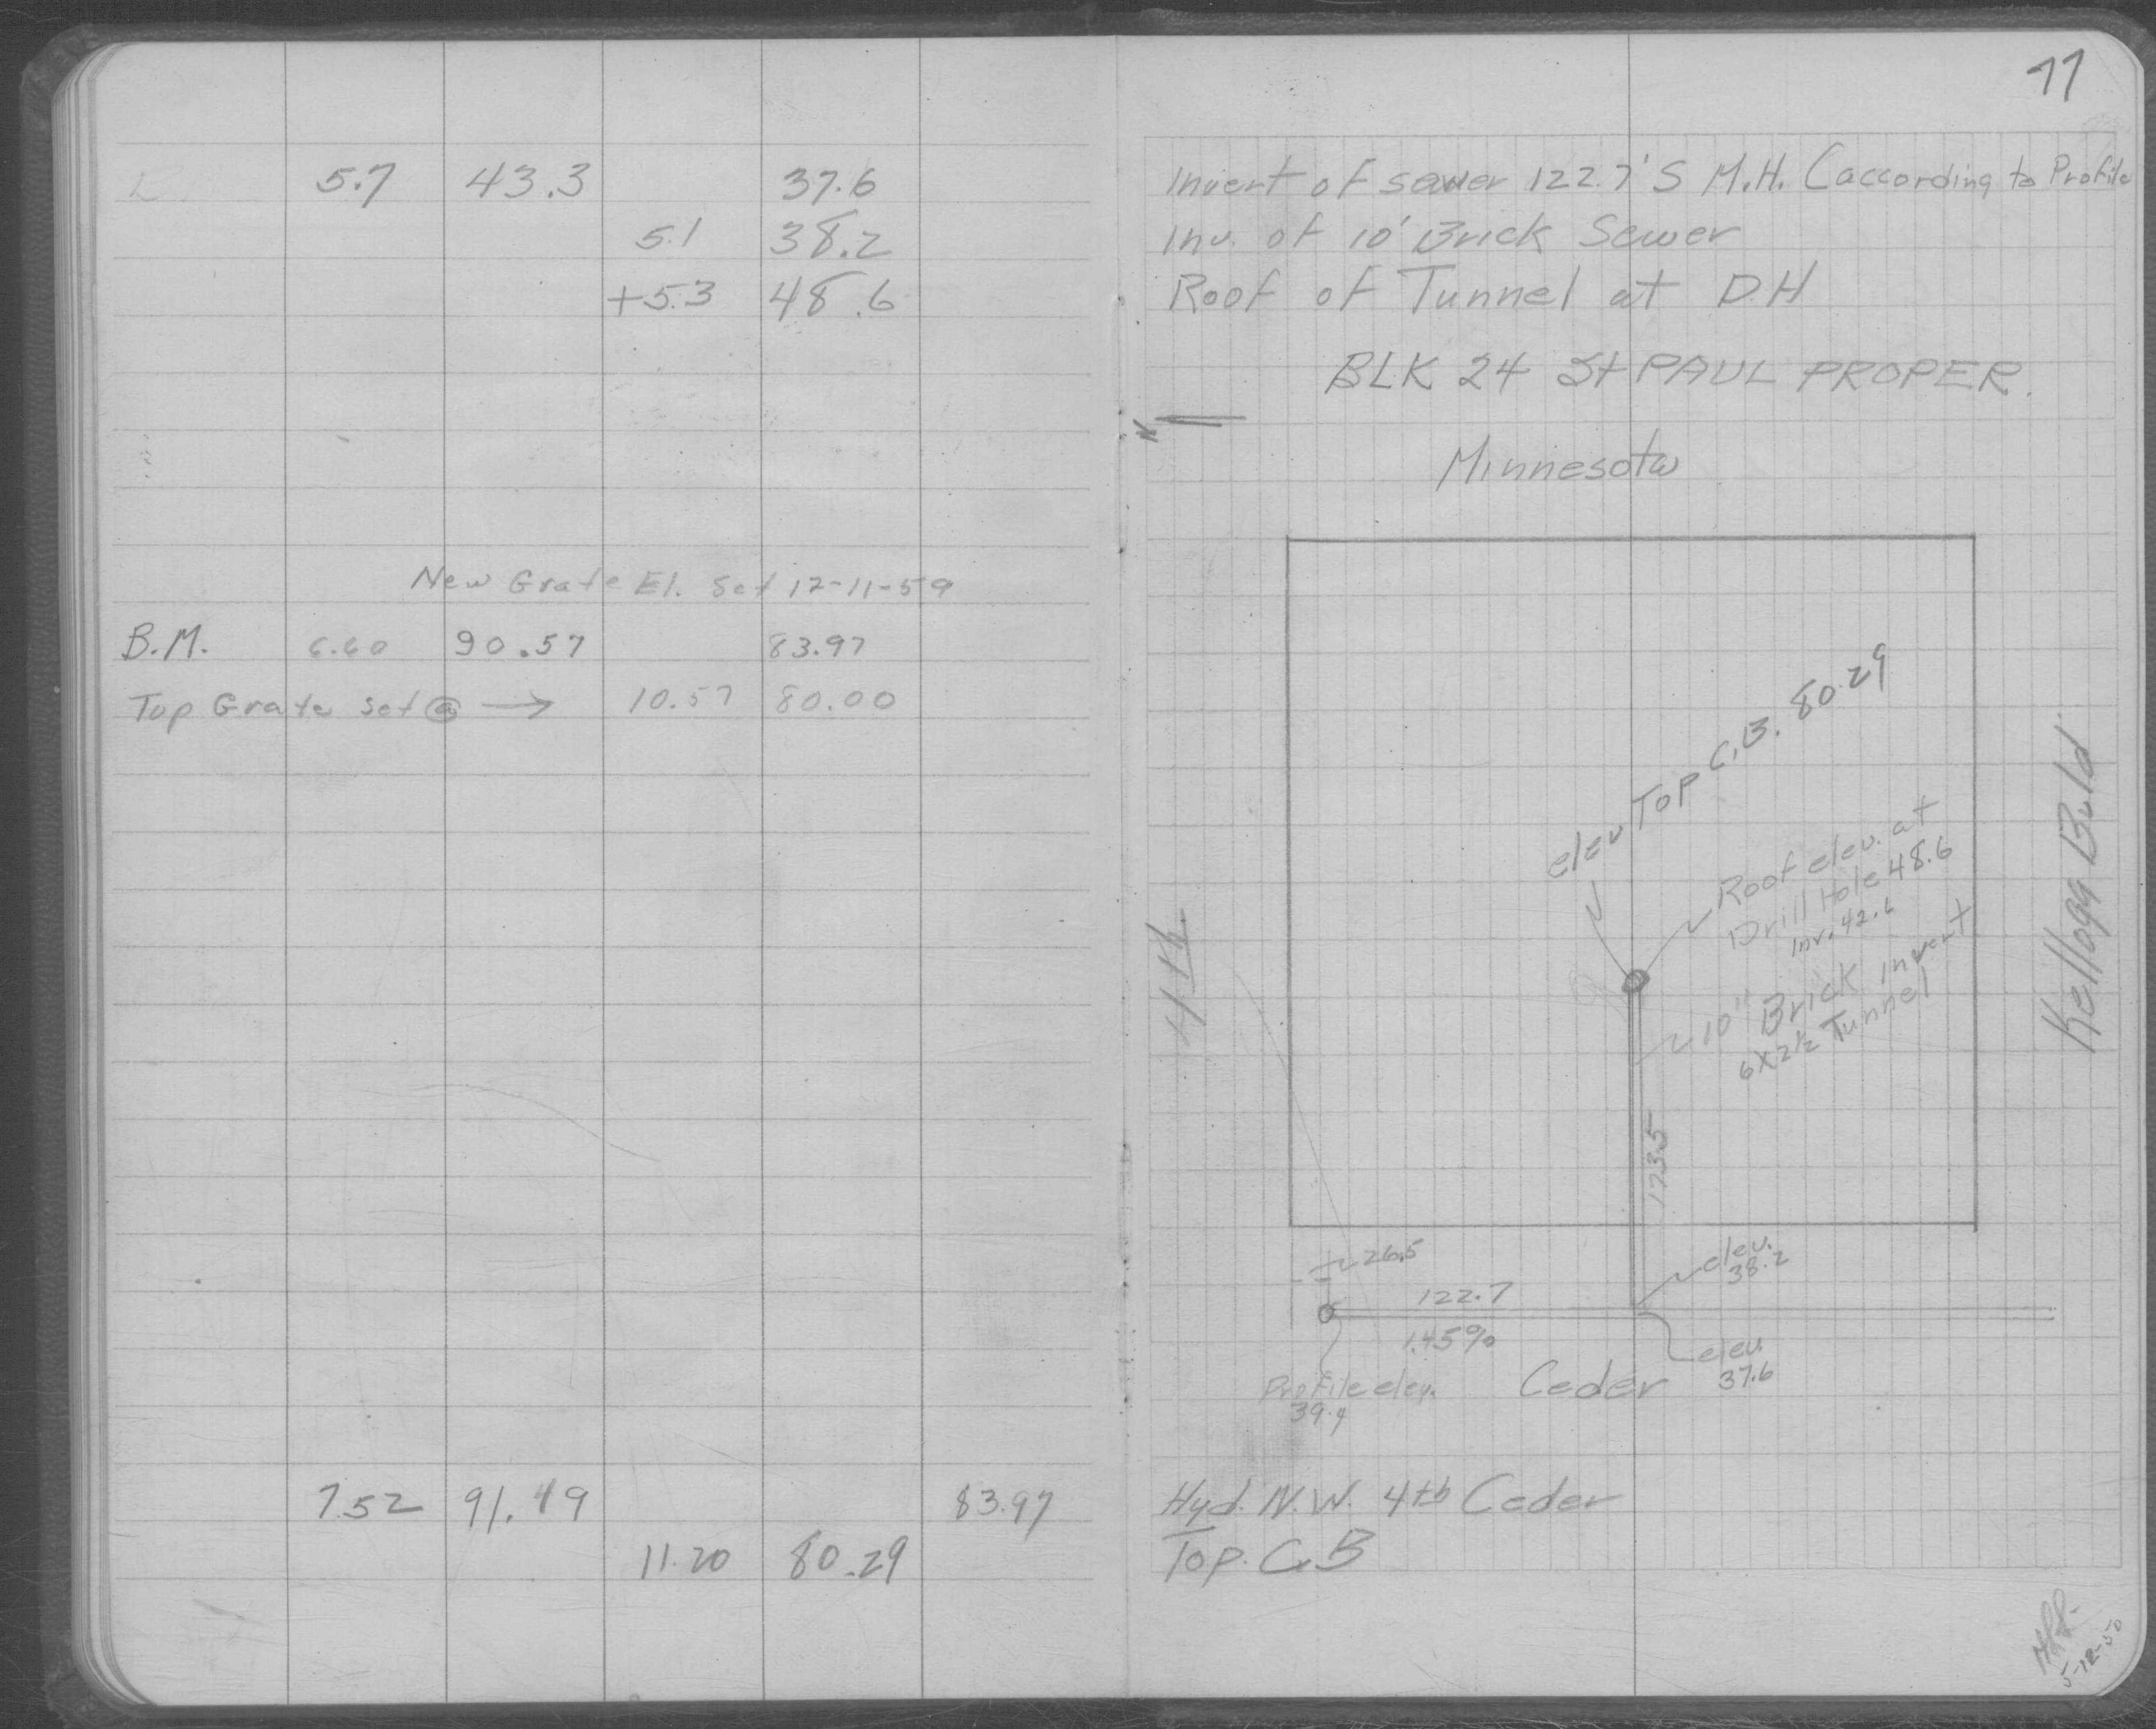 77
5.7 43.3 37.6 Invert of sewer 122.7' S M.H. (according to Profile
5.1 38.2 Inv. of 10' Brick Sewer
+5.3 48.6 Roof of Tunnel at D.H
BLK 24 St PAUL PROPER.
N
Minnesota
New Grate El. Set 12-11-59
B.M. 6.60 90.57 83.97
Top Grate set @ → 10.57 80.00
elev Top C.B. 80.29
Roof elev. at
Drill Hole 48.6
Inv. 42.6
10" Brick invert
6x2½ Tunnel
4th
Kellogg Bvld
173.5
26.5
elev.
38.2
122.7
1.45%
elev.
37.6
Profile elev.
39.4
Ceder
7.52 91.49 83.97 Hyd. N.W. 4th Ceder
11.20 80.29 Top. C.B
5-12-50